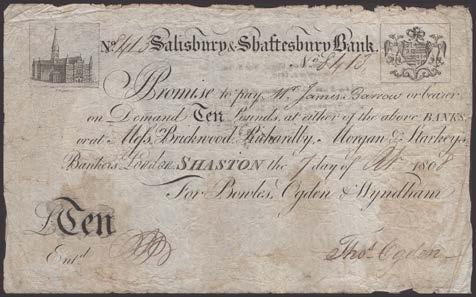 No. 8413 Salisbury & Shaftesbury Bank.
No. 8413
I Promise to pay Mr. James Barrow or bearer
on Demand Ten Pounds, at either of the above BANKS,
or at Mess. Brickwood, Morgan & Starkeys
Bankers London SHASTON the day of Oct. 1808
For Bowles, Ogden & Wyndham
£Ten
Entd.
Thos. Ogden